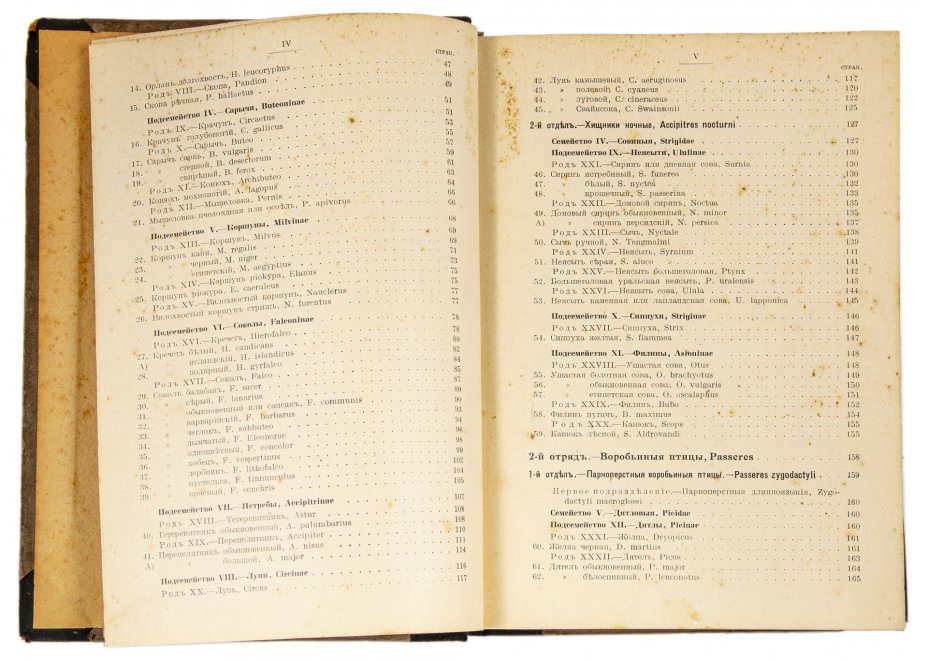 IV
СТРАН.
14. Орланъ долгохвостъ, H. leucoryphus 47
Родъ VIII.—Скопа, Pandion 48
15. Скопа рѣчная, P. haliaetus 49
Подсемейство IV.—Сарычи, Buteoninae 51
Родъ IX.—Крачунъ, Circaetus 51
16. Крачунъ голубоногій, C. gallicus 53
Родъ X.—Сарычъ, Buteo 55
17. Сарычъ сарнъ, B. vulgaris 57
18. » степной, B. desertorum 59
19. » свирѣпый, B. ferox 61
Родъ XI.—Конюхъ, Archibuteo 63
20. Конюхъ мохноногій, A. lagopus 64
Родъ XII.—Мышеловка, Pernis 66
21. Мышеловка пчелоядная или осоѣдъ, P. apivorus 66
Подсемейство V.—Коршуны, Milvinae 68
Родъ XIII.—Коршунъ, Milvus 69
22. Коршунъ каня, M. regalis 69
23. » черный, M. niger 71
24. » египетскій, M. aegyptius 73
Родъ XIV.—Коршунъ рiокура, Elanus 74
25. Коршунъ рiокура, E. caeruleus 75
Родъ XV.—Вилохвостый коршунъ, Nauclerus 77
26. Вилохвостый коршунъ стрижъ, N. furcatus 77
Подсемейство VI.—Соколы, Falconinae 78
Родъ XVI.—Кречетъ, Hierofalco 78
27. Кречетъ бѣлый, H. candicans 80
A) » исландскій, H. islandicus 82
28. » полярный, H. gyrfalco 84
Родъ XVII.—Соколъ, Falco 85
29. Соколъ балабанъ, F. sacer 87
30. » сѣрый, F. lanarius 89
31. » обыкновенный или сапсанъ, F. communis 90
32. » варварійскій, F. barbarus 93
33. » чеглокъ, F. subbuteo 94
34. » дымчатый, F. Eleonorae 96
35. » одноцвѣтный, F. concolor 98
36. » кобецъ, F. vespertinus 99
37. » дербникъ, F. lithofalco 102
38. » пустельга, F. tinnunculus 104
39. » красный, F. cenchris 105
Подсемейство VII.—Ястребы, Accipitrinae 107
Родъ XVIII.—Тетеревятникъ, Astur 108
40. Тетеревятникъ обыкновенный, A. palumbarius 108
Родъ XIX.—Перепелятникъ, Accipiter 110
41. Перепелятникъ обыкновенный, A. nisus 111
A) » большой, A. major 114
Подсемейство VIII.—Луни, Circinae 116
Родъ XX.—Лунь, Circus 117
V
СТРАН.
42. Лунь камышевый, C. aeruginosus 117
43. » полевой, C. cyaneus 120
44. » луговой, C. cineraceus 122
45. » Свайксона, C. Swainsonii 125
2-й отдѣлъ.—Хищники ночные, Accipitres nocturni 127
Семейство IV.—Совиныя, Strigidae 127
Подсемейство IX.—Неясыти, Ululinae 130
Родъ XXI.—Сиринъ или дневная сова, Surnia 130
46. Сиринъ ястребиный, S. funerea 130
47. » бѣлый, S. nyctea 132
48. » крошечный, S. passerina 133
Родъ XXII.—Домовой сиринъ, Noctua 135
49. Домовый сиринъ обыкновенный, N. minor 135
A) » сиринъ персидскій, N. persica 137
Родъ XXIII.—Сычъ, Nyctale 138
50. Сычъ ручной, N. Tengmalmi 139
Родъ XXIV.—Неясыть, Syrnium 141
51. Неясыть сѣрая, S. aluco 141
Родъ XXV.—Неясыть большеголовая, Ptynx 142
52. Большеголовая уральская неясыть, P. uralensis 143
Родъ XXVI.—Неясыть сова, Ulula 144
53. Неясыть каменная или лапландская сова, U. lapponica 145
Подсемейство X.—Сипухи, Striginae 146
Родъ XXVII.—Сипуха, Strix 146
54. Сипуха желтая, S. flammea 147
Подсемейство XI.—Филины, Asioninae 148
Родъ XXVIII.—Ушастая сова, Otus 148
55. Ушастая болотная сова, O. brachyotus 149
56. » обыкновенная сова, O. vulgaris 150
57. » египетская сова, O. ascalaphus 151
Родъ XXIX.—Филинъ, Bubo 152
58. Филинъ пугачъ, B. maximus 154
Родъ XXX.—Канюкъ, Scops 155
59. Канюкъ лѣсной, S. Aldrovandi 155
2-й отрядъ.—Воробьиныя птицы, Passeres 158
1-й отдѣлъ.—Парноперстныя воробьиныя птицы.—Passeres zygodactyli 159
Первое подраздѣленіе.—Парноперстныя длинноязыкія, Zygo-
dactyli macroglossi 160
Семейство V.—Дятловыя, Picidae 160
Подсемейство XII.—Дятлы, Picinae 160
Родъ XXXI.—Желна, Dryopicus 161
60. Желна черная, D. martius 161
Родъ XXXII.—Дятелъ, Picus 163
61. Дятелъ обыкновенный, P. major 164
62. » бѣлоспинный, P. leuconotus 165